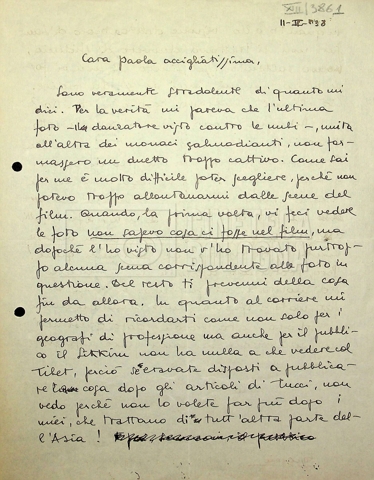 XIII/3861
11-IX-938
Cara Paola accigliatissima,
Sono veramente stradolente di quanto mi
dici. Per la verità mi pareva che l'ultima
foto - danzatore visto contro le nubi -, unita
all'altra dei monaci salmodianti, non for-
massero un duetto troppo cattivo. Come sai
per me è molto difficile poter scegliere, perchè non
potevo troppo allontanarmi dalle scene del
film. Quando, la prima volta, vi feci vedere
le foto non sapevo cosa ci fosse nel film, ma
dopochè l'ho visto non v'ho trovato purtrop-
po alcuna scena corrispondente alle foto in
questione. Del resto ti prevenni della cosa
fin da allora. In quanto al corriere mi
permetto di ricordarti come non solo per i
geografi di professione ma anche per il pubbli-
co il Sikkim non ha nulla a che vedere col
Tibet, perciò se eravate disposti a pubblica-
re cosa dopo gli articoli di Tucci, non
vedo perchè non lo volete far più dopo i
miei, che trattano di tutt'altra parte del-
l'Asia!